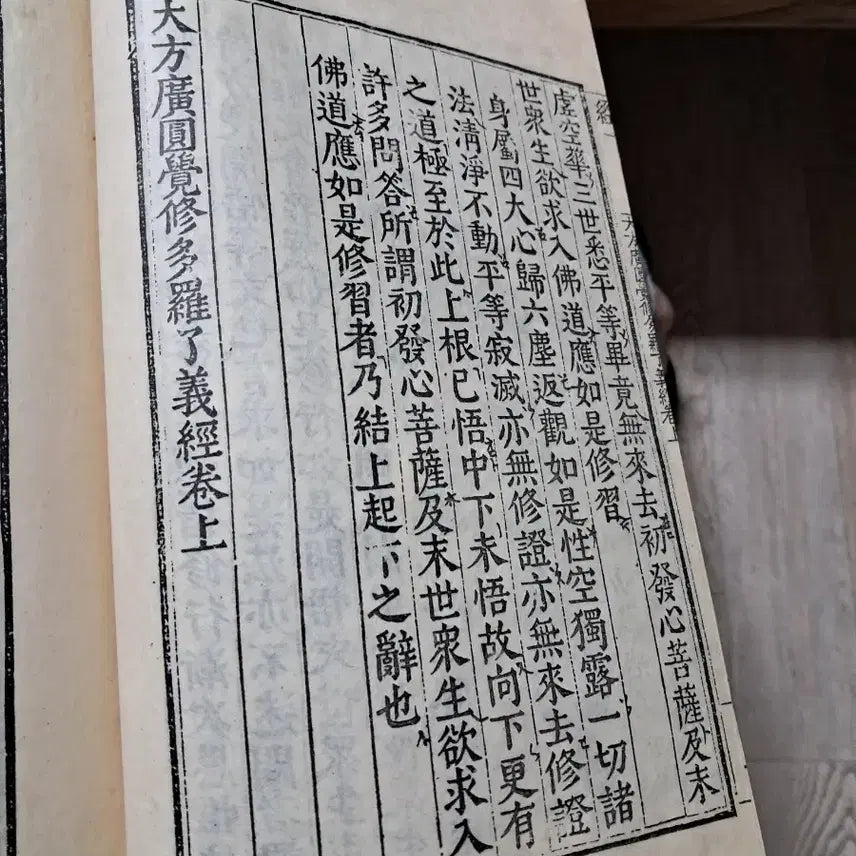 虛空華三世悉平等畢竟無來去初發心菩薩及末
世衆生欲求入佛道應如是修習
身屬四大心歸六塵返觀如是性空獨露一切諸
法清淨不動平等寂滅亦無修證亦無來去修證
之道極至於此上根已悟中下未悟故向下更有
許多問答所謂初發心菩薩及末世衆生欲求入
佛道應如是修習者乃結上起下之辭也
大方廣圓覺修多羅了義經卷上